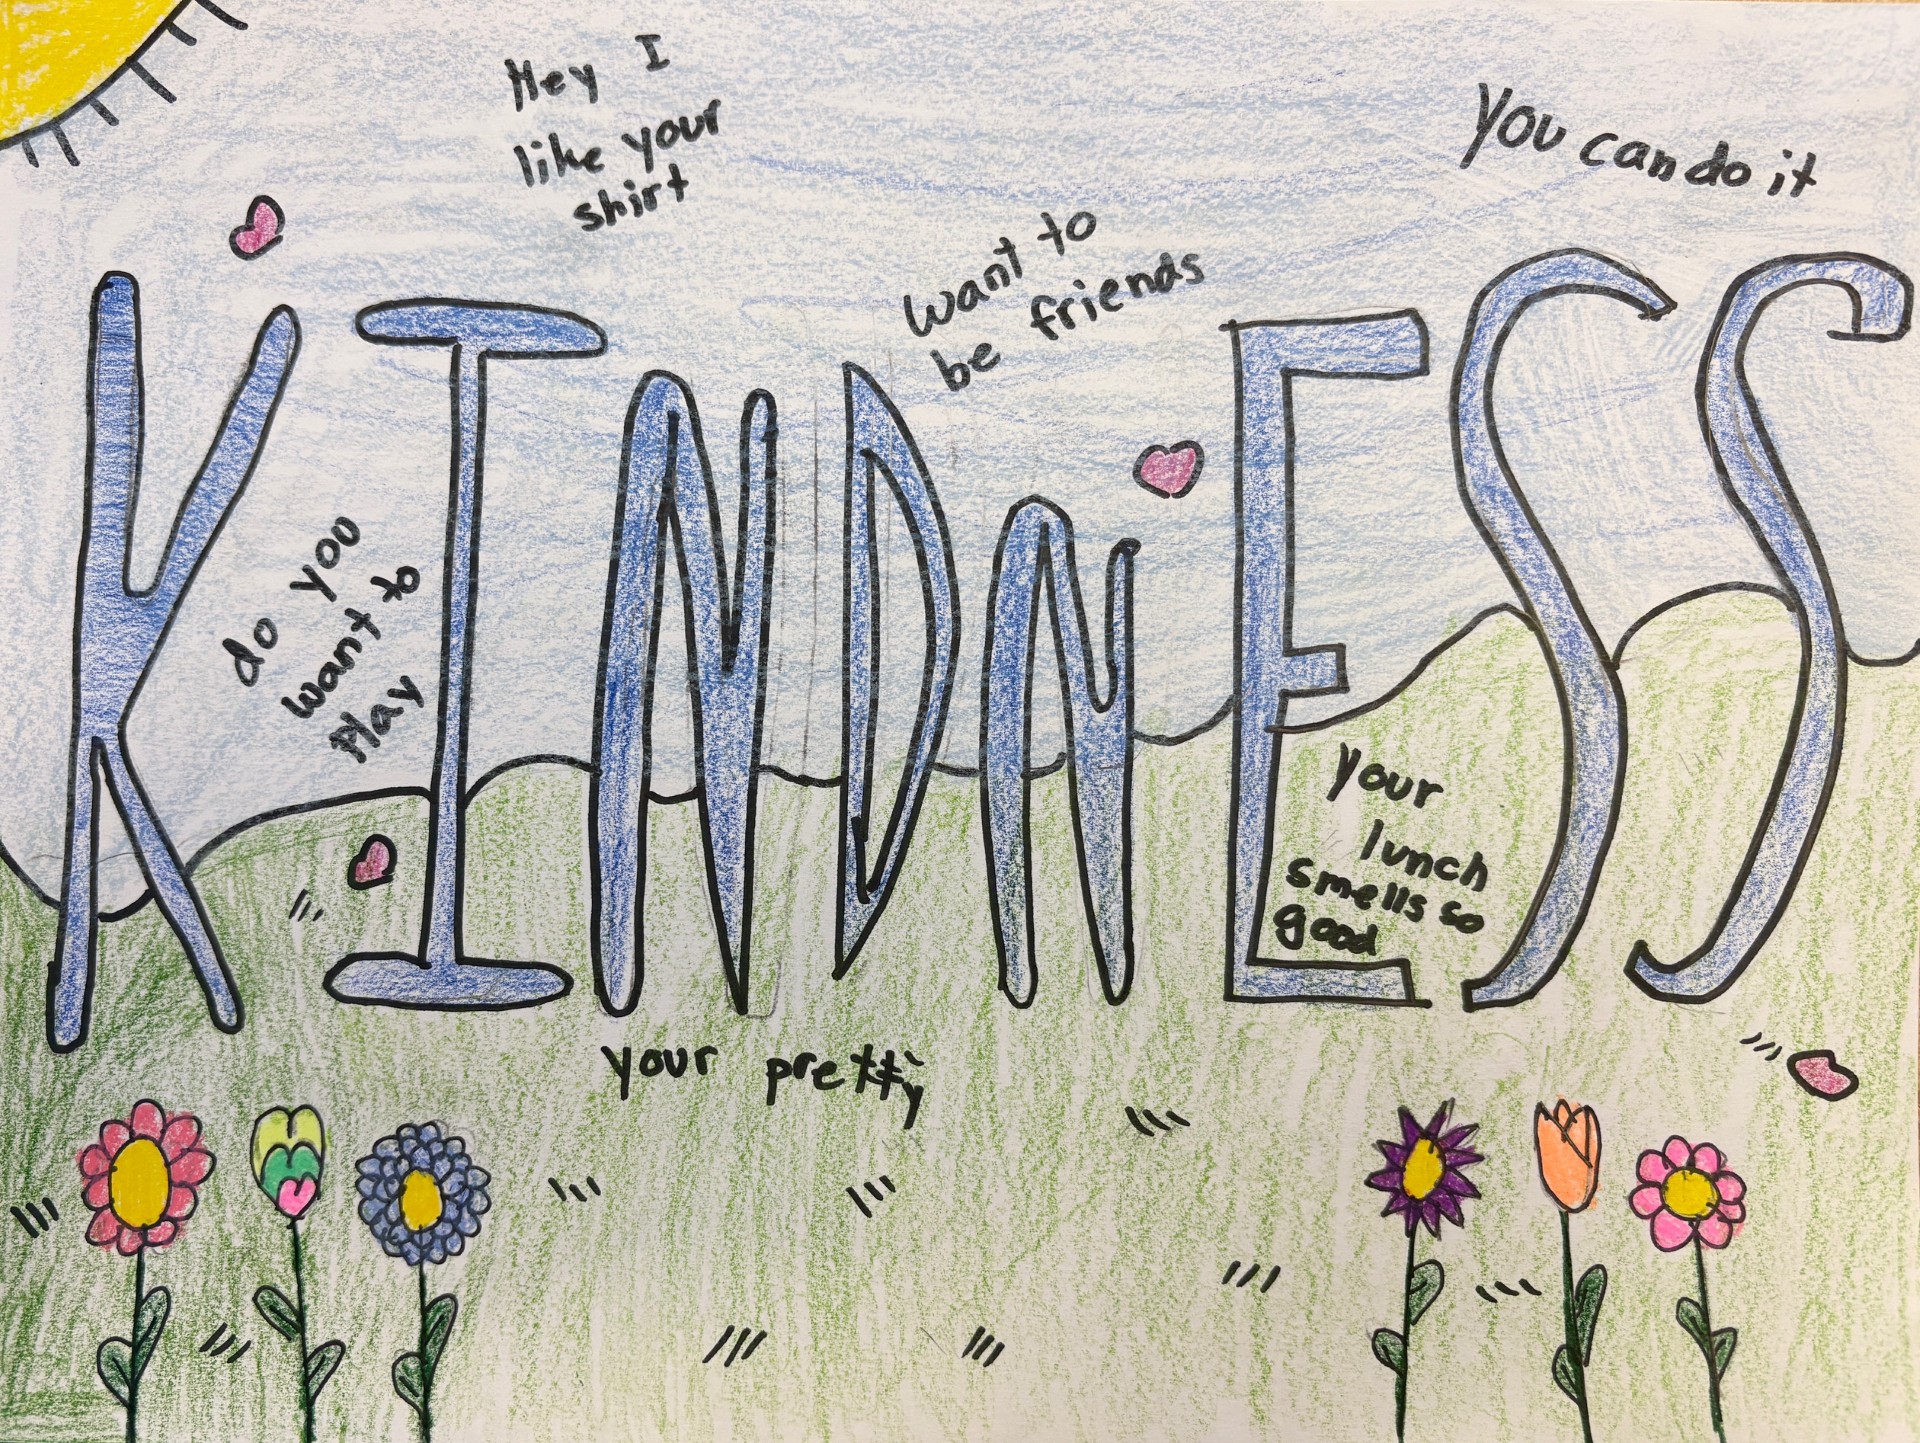 Hey I
like your
shirt
You can do it
want to
be friends
KINDnESS
do you
want to
Play
Your
lunch
smells so
good
your pretty